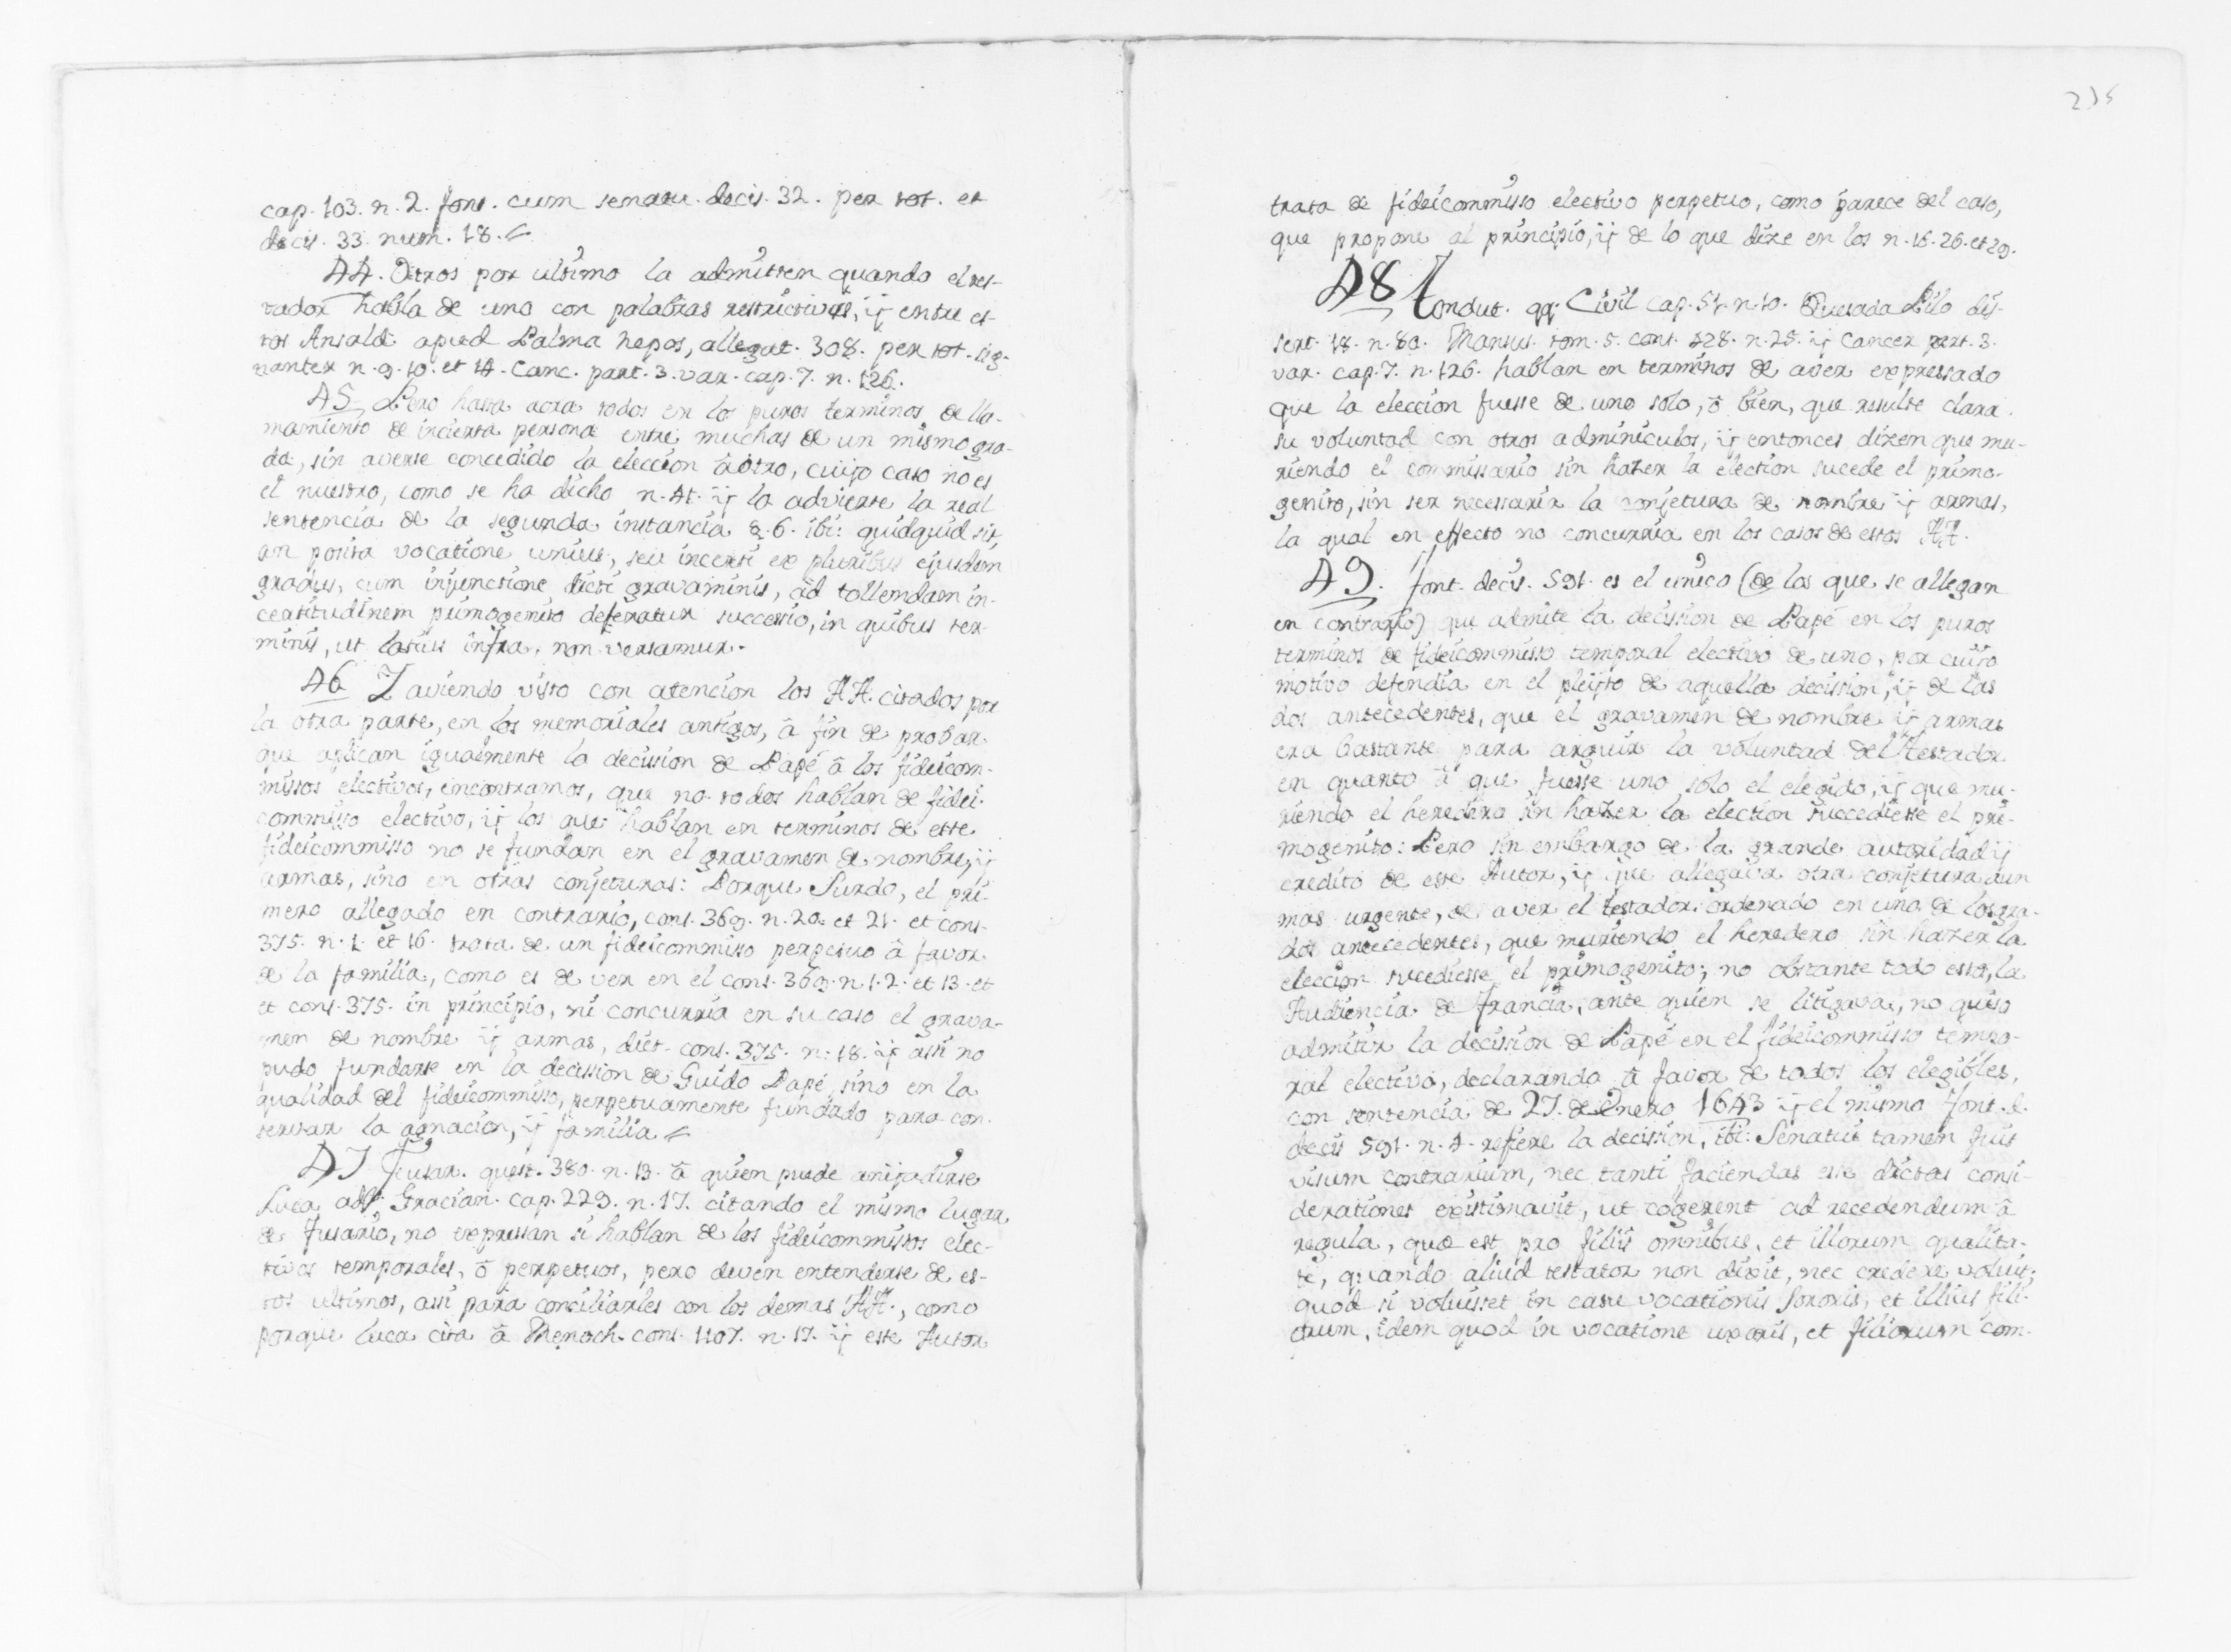 cap. 103. n. 2. font. cum senatu decis. 32. per tot. et
decis. 33. num. 18.
44. Otros por ultimo la admitten quando el tes-
tador habla de uno con palabras restrictivas, ÿ entre es-
tos Ansald. apud Palma nepos, allegat. 308. per tot. sig-
nanter n. 9. 10. et 14. Canc. part. 3. var. cap. 7. n. 126.
45 Pero hasta aora todos en los puros terminos de lla-
mamiento de incierta persona entre muchas de un mismo gra-
do, sin averse concedido la eleccion â otro, cuÿo caso no es
el nuestro, como se ha dicho n. 41. ÿ lo advierte la real
sentencia de la segunda instancia §. 6. ibi: quidquid sit,
an posita vocatione unius, seu incerti ex pluribus ejusdem
gradus, cum injunctione dicti gravaminis, ad tollendam in-
certitudinem primogenito deferatur successio, in quibus ter-
minis, ut latius infra, non versamur.
46 I aviendo visto con atencion los AA. citados por
la otra parte, en los memoriales antigos, â fin de probar
que aplican igualmente la decision de Papé â los fideicom-
missos electivos, encontramos, que no todos hablan de fidei-
commisso electivo, ÿ los que hablan en terminos de este
fideicommisso no se fundan en el gravamen de nombre, ÿ
armas, sino en otras conjeturas: Porque Surdo, el pri-
mero allegado en contrario, cons. 369. n. 20. et 21. et cons.
375. n. 1. et 16. trata de un fideicommisso perpetuo â favor
de la familia, como es de ver en el cons. 369. n. 1. 2. et 13. et
et cons. 375. in principio, ni concurria en su caso el grava-
men de nombre ÿ armas, dict. cons. 375. n. 18. ÿ assi no
pudo fundarse en la decission de Guido Papé, sino en la
qualidad del fideicommisso, perpetuamente fundado para con-
servar la agnacion, ÿ familia.
47 Fusar. quest. 380. n. 13. â quien puede aniÿadirse
Luca ad Gracian. cap. 229. n. 17. citando el mismo lugar
de Fusario, no expressan si hablan de los fideicommissos elec-
tivos temporales, ô perpetuos, pero deven entenderse de es-
tos ultimos, assi para conciliarles con los demas AA., como
porque Luca cita â Menoch. cons. 1107. n. 17. ÿ este Autor
235
trata de fideicommisso electivo perpetuo, como parece del caso,
que propone al principio, ÿ de lo que dize en los n. 16. 26. et 29.
48 Tondut. qq. Civil cap. 51. n. 10. Quesada Pilo dis-
sert. 18. n. 80. Mansus. tom. 5. cons. 428. n. 25. ÿ Cancer part. 3.
var. cap. 7. n. 126. hablan en terminos de aver expressado
que la eleccion fuesse de uno solo, ô bien, que resulte clara
su voluntad con otros adminiculos, ÿ entonces dizen que mu-
riendo el commissario sin hazer la election sucede el primo-
genito, sin ser necessaria la conjetura de nombre ÿ armas,
la qual en effecto no concurria en los casos de estos AA.
49. font. decis. 591. es el unico (de los que se allegan
en contrario) que admite la decission de Papé en los puros
terminos de fideicommisso temporal electivo de uno, por cuÿo
motivo defendia en el pleÿto de aquella decission, ÿ de las
dos antecedentes, que el gravamen de nombre ÿ armas
era bastante para arguir la voluntad del Testador
en quanto â que fuesse uno solo el elegido, ÿ que mu-
riendo el heredero sin hazer la election succediesse el pri-
mogenito: Pero sin embargo de la grande autoridad ÿ
credito de este Autor, ÿ que allegava otra conjetura aun
mas urgente, de aver el testador ordenado en uno de los gra-
dos antecedentes, que muriendo el heredero sin hazer la
eleccion sucediesse el primogenito; no obstante todo esso, la
Audiencia de Francia, ante quien se litigava, no quiso
admitir la decission de Papé en el fideicommisso tempo-
ral electivo, declarando â favor de todos los elegibles,
con sentencia de 27. de Enero 1643 ÿ el mismo font. d.
decis 591. n. 4. refiere la decission, ibi: Senatui tamen fuit
visum contrarium, nec tanti faciendas esse dictas consi-
derationes existimavit, ut cogerent ad recedendum â
regula, quæ est pro filiis omnibus, et illorum qualita-
te, quando aliud testator non dixit, nec credere voluit;
quod si voluisset in casu vocationis Sororis, et illius fili-
orum, idem quod in vocatione uxoris, et filiorum com-